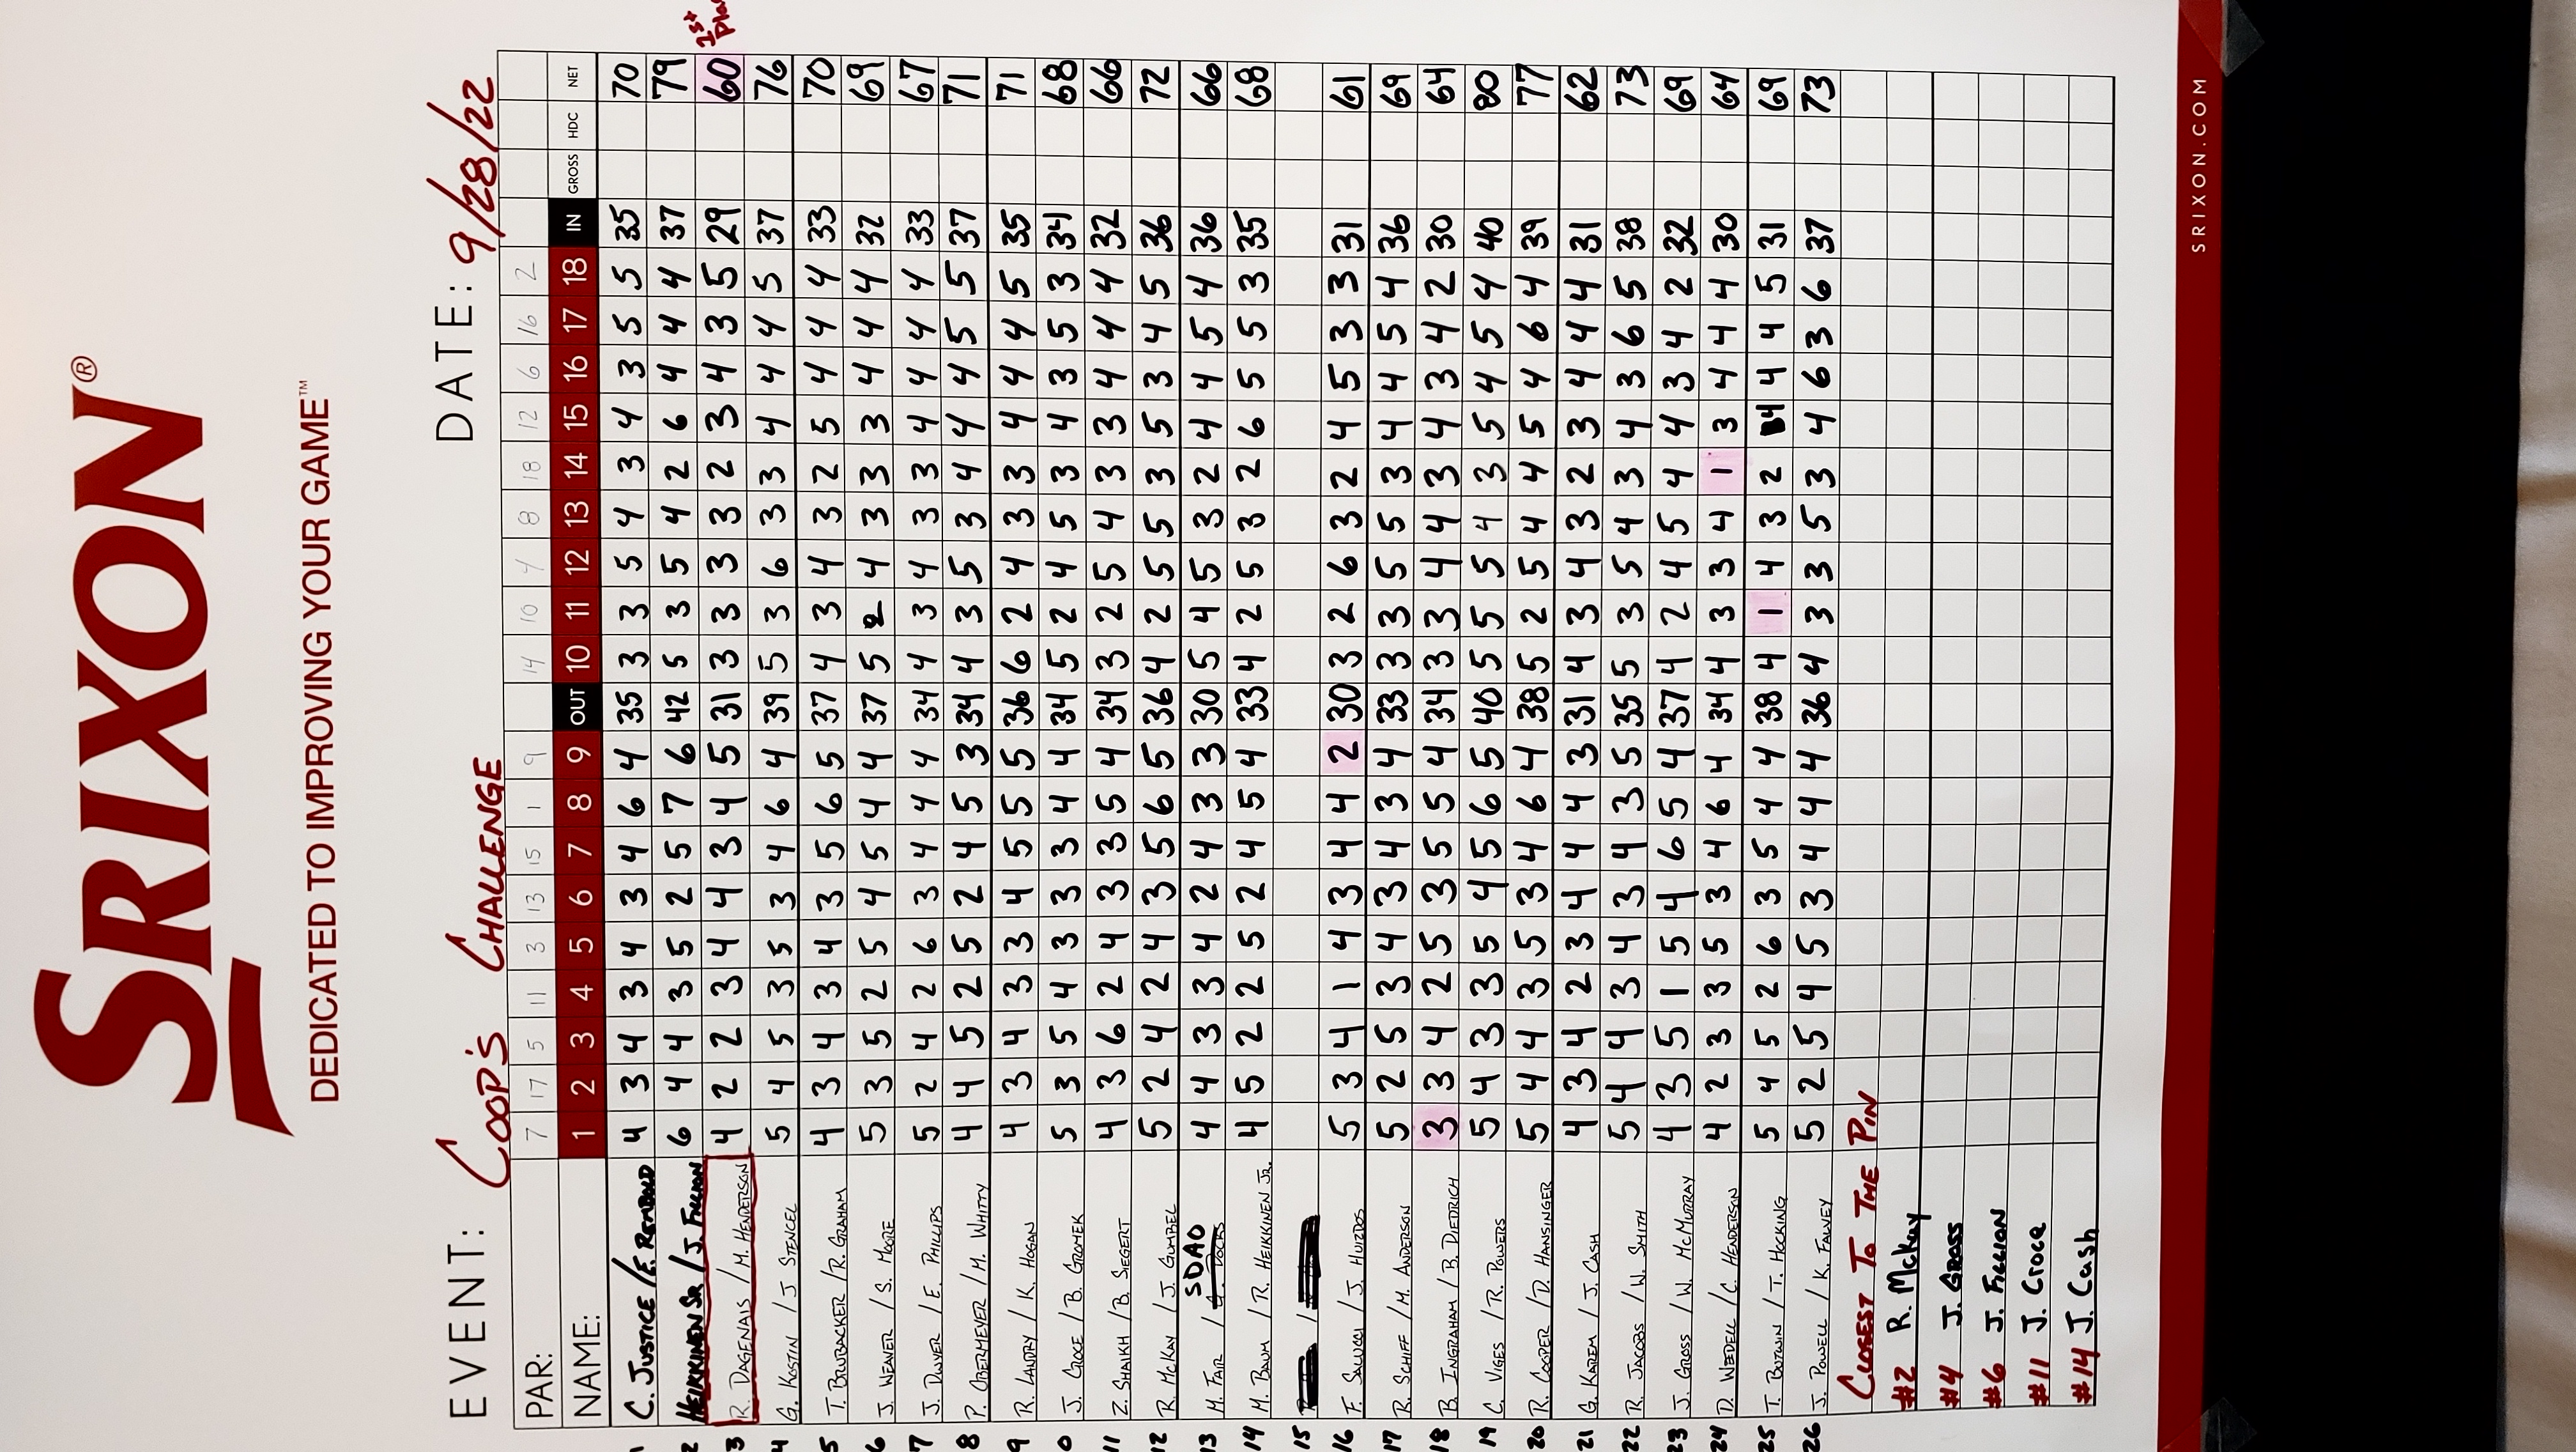 SRIXON®
DEDICATED TO IMPROVING YOUR GAME™
EVENT: COOP'S CHALLENGE DATE: 9/28/22
PAR: 7 17 5 11 3 13 15 1 9 14 10 4 8 18 12 6 16 2
NAME: 1 2 3 4 5 6 7 8 9 OUT 10 11 12 13 14 15 16 17 18 IN GROSS HDC NET
1 C. JUSTICE / E. 4 3 4 3 4 3 4 6 4 35 3 3 5 4 3 4 3 5 5 35 70
2 HEIKKINEN SR / J. FIGLION 6 4 4 3 5 2 5 7 6 42 5 3 5 4 2 6 4 4 4 37 79
3 R. DAGENAIS / M. HENDERSON 4 2 2 3 4 4 3 4 5 31 3 3 3 3 2 3 4 3 5 29 60 1st place
4 G. KOSTIN / J STENCEL 5 4 5 3 5 3 4 6 4 39 5 3 6 3 3 4 4 4 5 37 76
5 T. BRUBACKER / R. GRAHAM 4 3 4 3 4 3 5 6 5 37 4 3 4 3 2 5 4 4 4 33 70
6 J. WEAVER / S. MOORE 5 3 5 2 5 4 5 4 4 37 5 2 4 3 3 3 4 4 4 32 69
7 J. DWYER / E. PHILLIPS 5 2 4 2 6 3 4 4 4 34 4 3 4 3 3 4 4 4 4 33 67
8 P. OBERMEYER / M. WHITTY 4 4 5 2 5 2 4 5 3 34 4 3 5 3 4 4 4 5 5 37 71
9 R. LANDRY / K. HOGAN 4 3 4 3 3 4 5 5 5 36 6 2 4 3 3 4 4 4 5 35 71
0 J. CROCE / B. GROMEK 5 3 5 4 3 3 3 4 4 34 5 2 4 5 3 4 3 5 3 34 68
11 Z. SHAIKH / B. SIEGERT 4 3 6 2 4 3 3 5 4 34 3 2 5 4 3 3 4 4 4 32 66
12 R. McKAY / J. GUMBEL 5 2 4 2 4 3 5 6 5 36 4 2 5 5 3 5 3 4 5 36 72
13 M. FAIR / SODAO 4 4 3 3 4 2 4 3 3 30 5 4 5 3 2 4 4 5 4 36 66
14 M. BAUM / R. HEIKKINEN JR. 4 5 2 2 5 2 4 5 4 33 4 2 5 3 2 6 5 5 3 35 68
15 /
16 F. SALUCCI / J. HUIZDOS 5 3 4 1 4 3 4 4 2 30 3 2 6 3 2 4 5 3 3 31 61
17 R. SCHIFF / M. ANDERSON 5 2 5 3 4 3 4 3 4 33 3 3 5 5 3 4 4 5 4 36 69
18 B. INGRAHAM / B. DIEDRICH 3 3 4 2 5 3 5 5 4 34 3 3 4 4 3 4 3 4 2 30 64
19 C. VIGES / R. POWERS 5 4 3 3 5 4 5 6 5 40 5 5 5 4 3 5 4 5 4 40 80
20 R. COOPER / D. HANSINGER 5 4 4 3 5 3 4 6 4 38 5 2 5 4 4 5 4 6 4 39 77
21 G. KAREM / J. CASH 4 3 4 2 3 4 4 4 3 31 4 3 4 3 2 3 4 4 4 31 62
22 R. JACOBS / W. SMITH 5 4 4 3 4 3 4 3 5 35 5 3 5 4 3 4 3 6 5 38 73
23 J. GROSS / W. McMURRAY 4 3 5 1 5 4 6 5 4 37 4 2 4 5 4 4 3 4 2 32 69
24 D. WEDELL / C. HENDERSON 4 2 3 3 5 3 4 6 4 34 4 3 3 4 1 3 4 4 4 30 64
25 T. BUTWIN / T. HOCKING 5 4 5 2 6 3 5 4 4 38 4 1 4 3 2 4 4 4 5 31 69
26 J. POWELL / K. FAWLEY 5 2 5 4 5 3 4 4 4 36 4 3 3 5 3 4 6 3 6 37 73
CLOSEST TO THE PIN
#2 R. McKay
#4 J. Gross
#6 J. FIGLION
#11 J. Croce
#14 J. Cash
SRIXON.COM